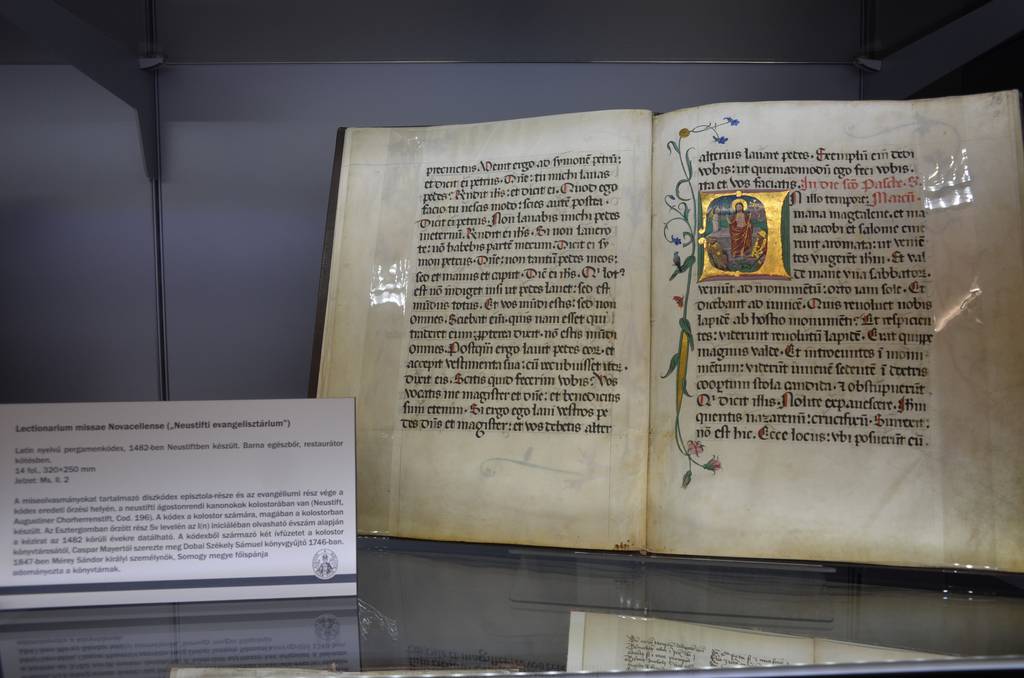 Lectionarium missae Novacellense („Neustifti evangelisztárium")
Latin nyelvű pergamenkódex, 1482-ben Neustiftben készült. Barna egészbőr, restaurátor
kötésben.
14 fol., 320×250 mm
Jelzet: Ms. II. 2
A miseolvasmányokat tartalmazó díszkódex episztola-része és az evangéliumi rész vége a
kódex eredeti őrzési helyén, a neustifti ágostonrendi kanonokok kolostorában van (Neustift,
Augustiner Chorherrenstift, Cod. 196). A kódex a kolostor számára, magában a kolostorban
készült. Az Esztergomban őrzött rész 5v levelén az I(n) iniciáléban olvasható évszám alapján
a kézirat az 1482 körüli évekre datálható. A kódexből származó két ívfüzetet a kolostor
könyvtárosától, Caspar Mayertől szerezte meg Dobai Székely Sámuel könyvgyűjtő 1746-ban.
1847-ben Mérey Sándor királyi személynök, Somogy megye főispánja
adományozta a könyvtárnak.
precinctus. Venit ergo ad symonē petrū:
et dicit ei petrus. Dn̄e: tu michi lauas
pedes? Rn̄dit ih̄s: et dicit ei. Quod ego
facio tu nescis modo: scies autē postea.
Dicit ei petrus. Non lauabis michi pedes
ineternū. Rn̄dit ei ih̄s. Si non lauero
te: nō habebis partē mecum. Dicit ei sy
mon petrus. Dn̄e: non tantū pedes meos:
sed et manus et caput. Dic̄ ei ih̄s. Qi lot9
est nō indiget nisi ut pedes lauet: sed est
mūdus totus. Et vos mūdi estis: sed non
omnes. Sciebat eni̅: quis nam esset qui
traderet eum: ppterea dixit. nō estis mūdi
omnes. Postqm̄ ergo lauit pedes eoꝝ: et
accepit vestimenta sua: cū recubuisset iteꝝ.
dixit eis. Scitis quid fecerim vobis? Vos
vocatis me magister et dn̄e: et benedicitis
sum etenim. Si ergo ego laui vestros pe
des dn̄s et magister: et vos debetis alter
alterius lauare pedes. Exemplū em̄ dedi
vobis: ut quemadmodū ego feci vobis.
ita et vos faciatis. In die scō Pasche. S.
N illo tempore: Marcū.
maria magdalene. et ma
ria iacobi et salome eme
runt aromata: ut veniē
tes vngerēt ih̄m. Et val
de mane vna sabbatoꝝ.
veniūt ad monumentū: orto iam sole. Et
dicebant ad inuicē. Quis reuoluet nobis
lapidē ab hostio monumenti? Et respicien
tes: viderunt reuolutū lapidē. Erat quippe
magnus valde. Et introeuntes ī monu
mētum: viderūt iuuenē sedentē ī dextris
coopertum stola candida. ⁊ obstupuerūt
Qi dicit illis. Nolite expauescere. Ih̄m
queritis nazarenū: crucifixū. Surrexit:
nō est hic. Ecce locus: vbi posuerūt eū.